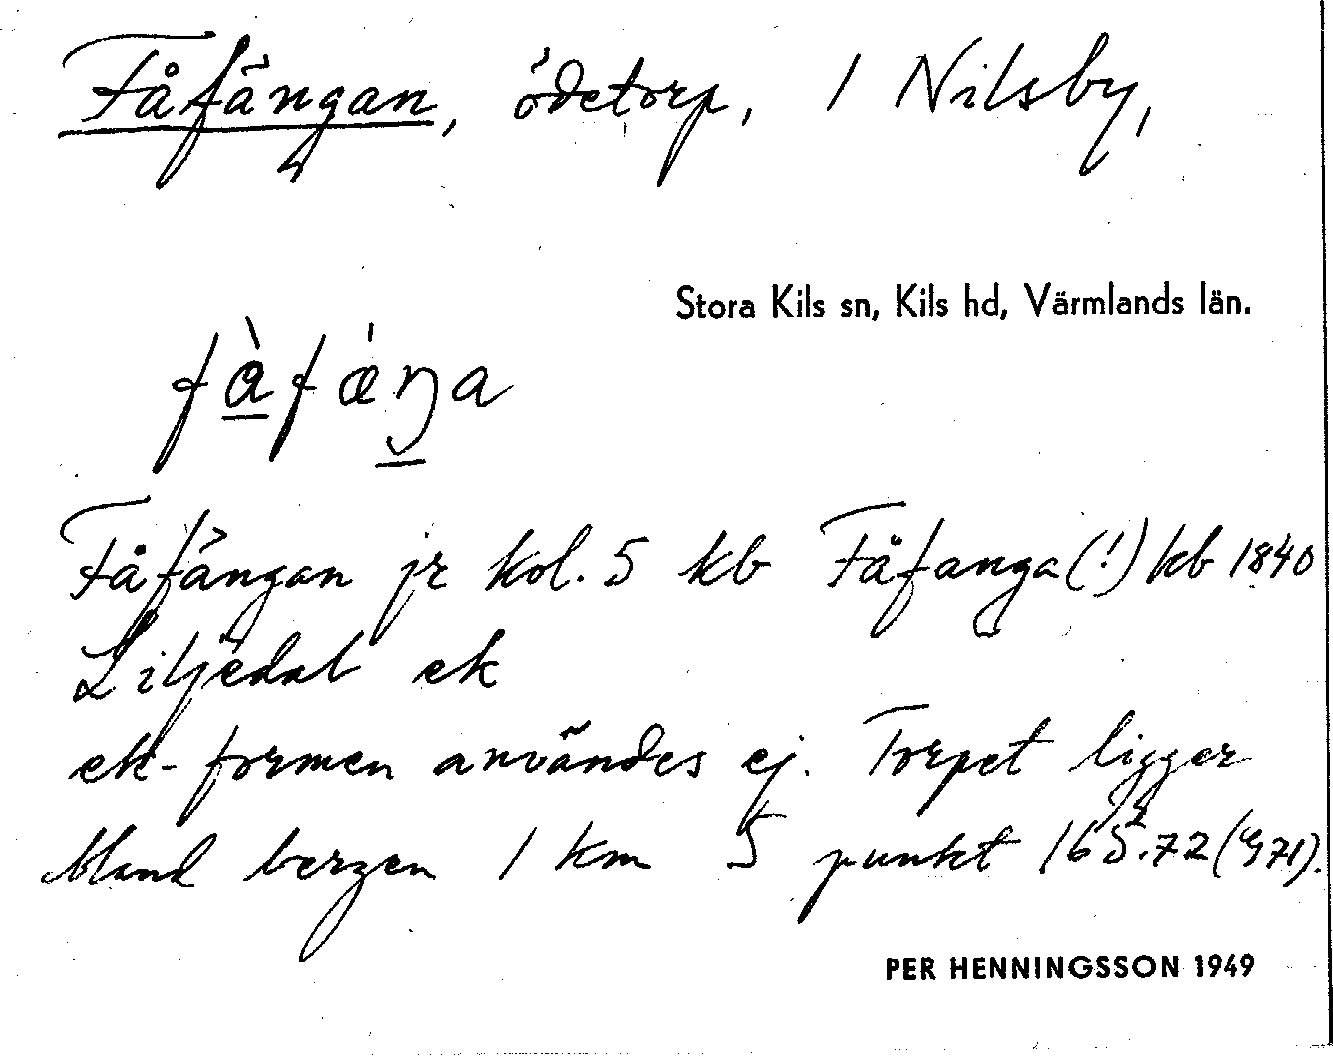 Fåfängan, ödetorp, 1 Nilsby,
Stora Kils sn, Kils hd, Värmlands län.
fàfǽŋa
Fåfängan jr kol. 5 kb Fåfanga(!) kb 1840
Liljedal ek
ek-formen användes ej. Torpet ligger
bland bergen 1 km S punkt 165.72 (G71).
PER HENNINGSSON 1949